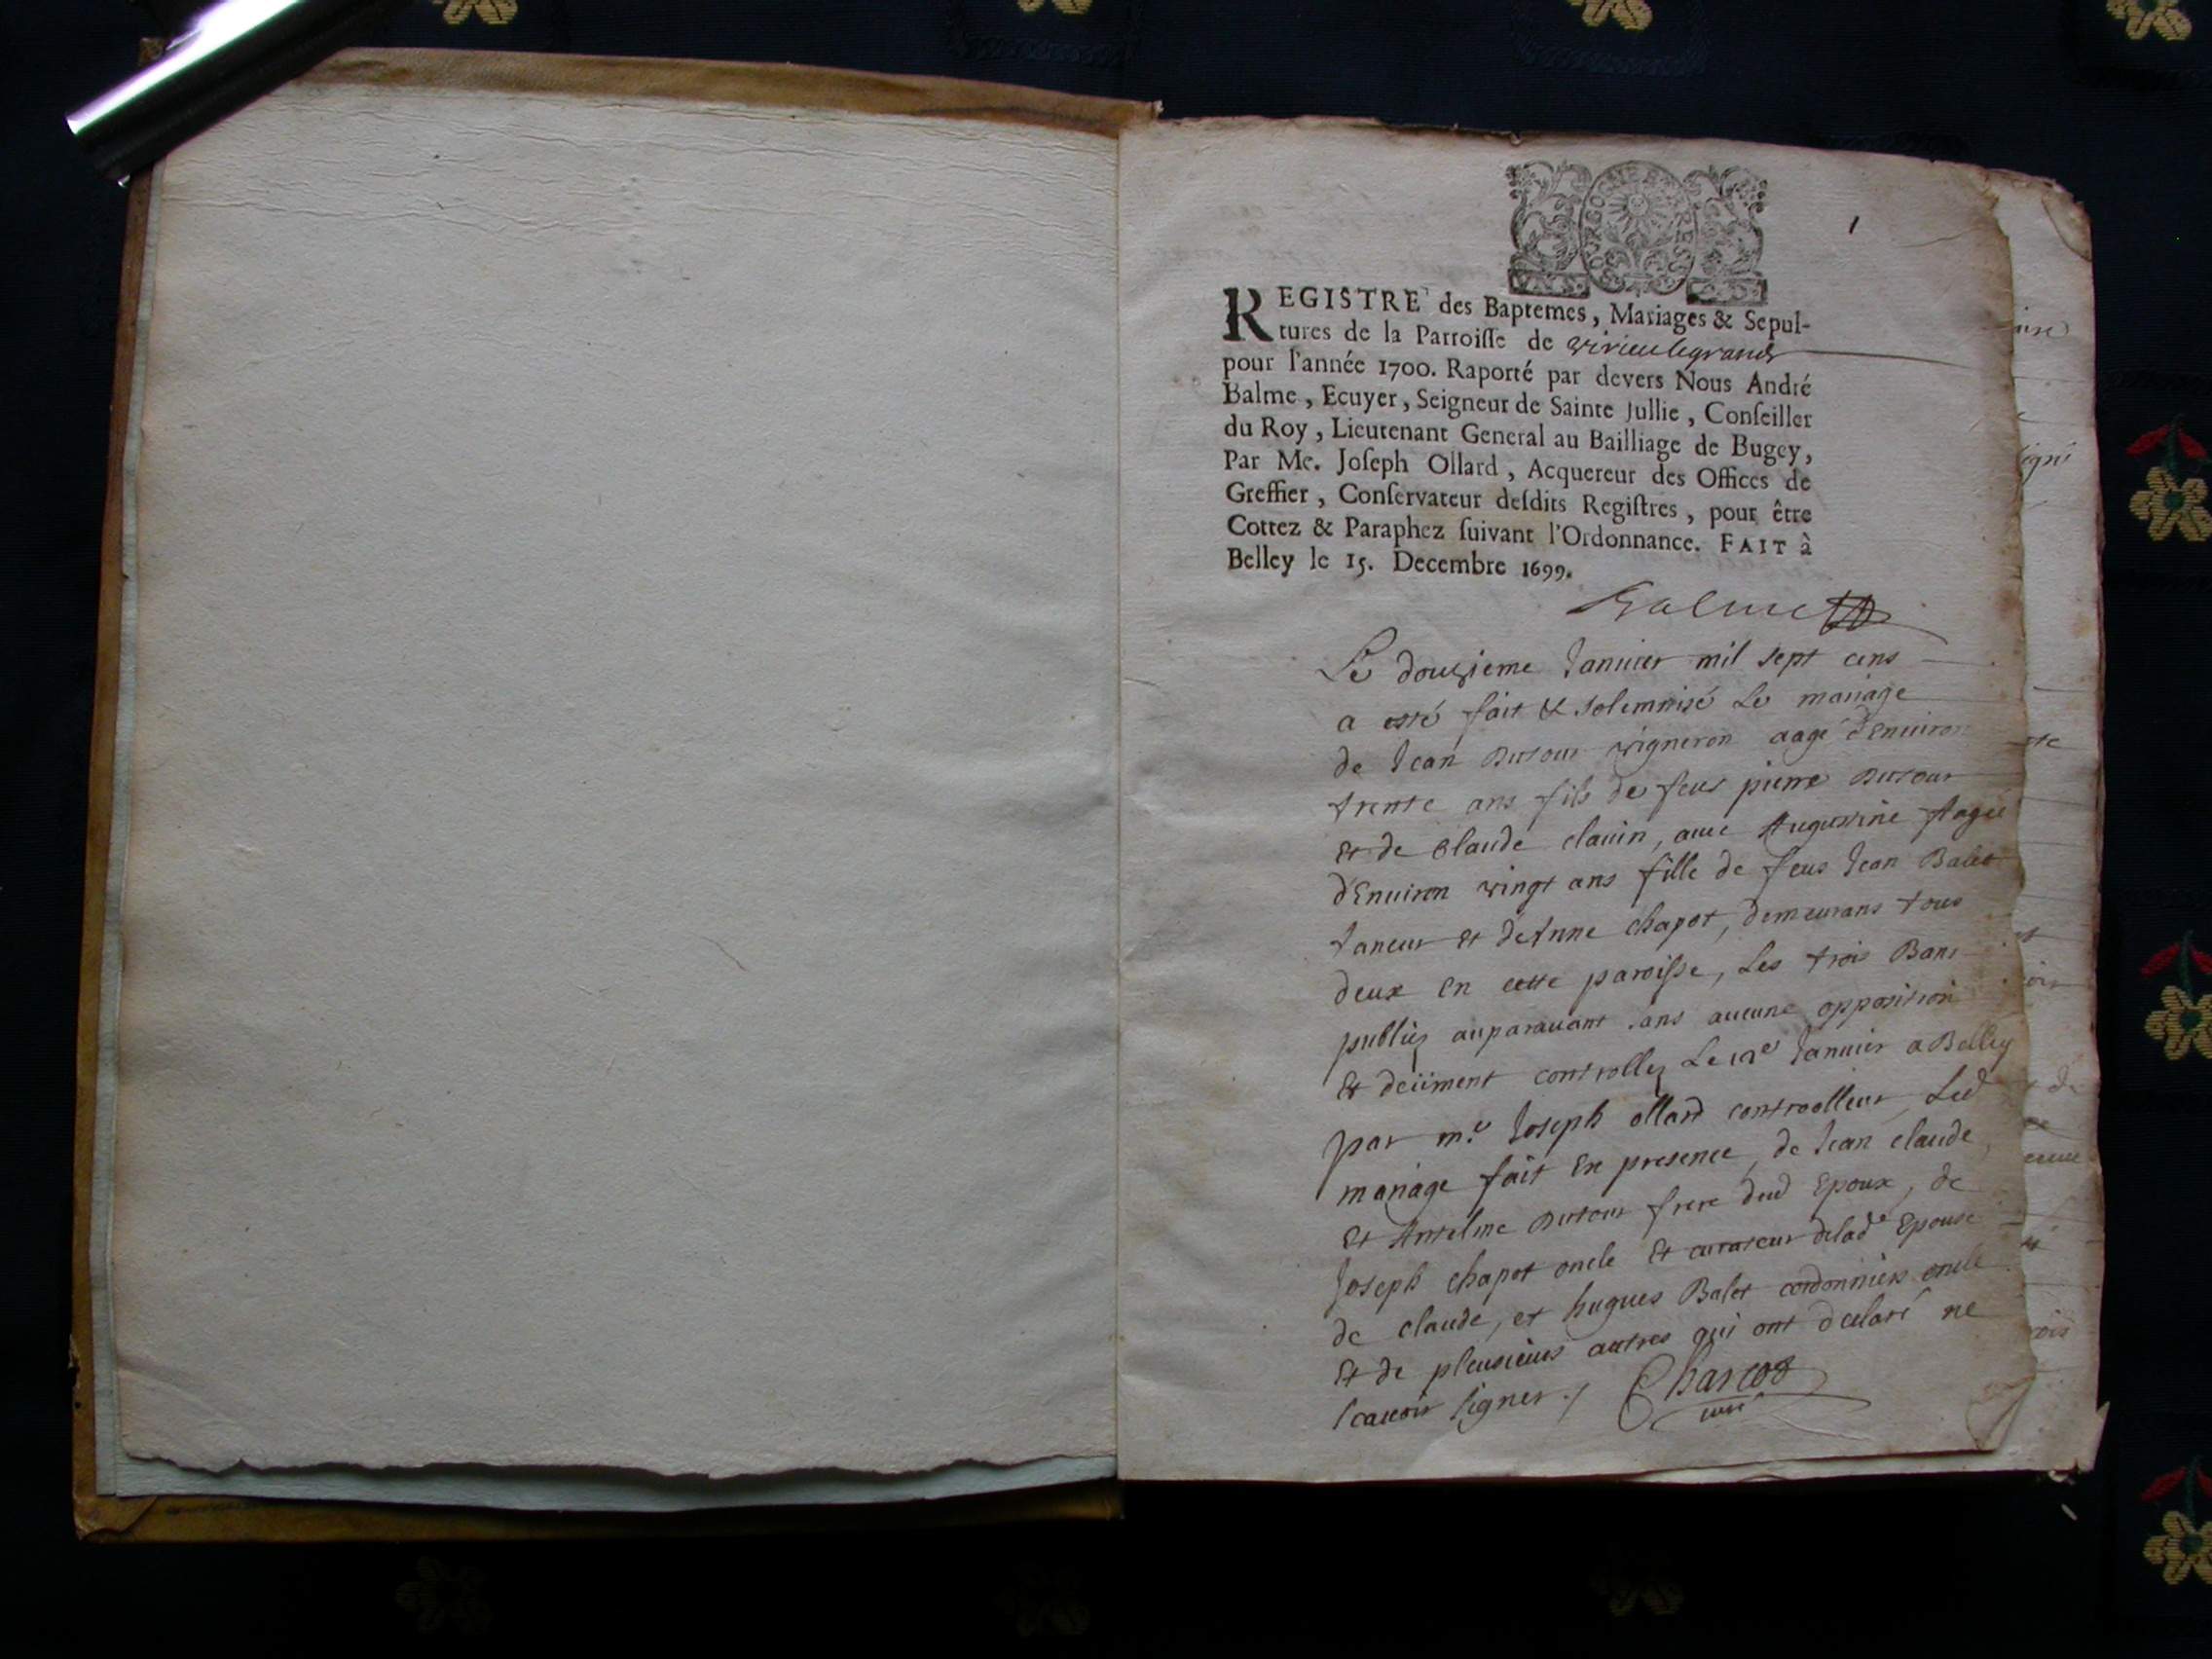 1
BOURGOGNE ET BRESSE
REGISTRE des Baptemes, Mariages & Sepul-
tures de la Parroisse de virieulegrand
pour l'année 1700. Raporté par devers Nous André
Balme, Ecuyer, Seigneur de Sainte Jullie, Conseiller
du Roy, Lieutenant General au Bailliage de Bugey,
Par Me. Joseph Ollard, Acquereur des Offices de
Greffier, Conservateur desdits Registres, pour être
Cottez & Paraphez suivant l'Ordonnance. FAIT à
Belley le 15. Decembre 1699.
Balme
Le douzieme Januier mil sept cens
a esté fait & solemnisé Le mariage
de Jean Dutour vigneron aagé d'Enuiron
trente ans fils de feu pierre Dutour
Et de Claude clauin, auec Augustine Aagée
d'Enuiron vingt ans fille de feus Jean Balet
taneur et de Anne chapot, demeurans tous
deux En cette paroisse, Les trois Bans
publiez auparauant sans aucune opposition
Et deüment controllez Le 12e Januier a Belley
par me Joseph ollard controolleur, Led
mariage fait En presence, de Jean claude,
Et Antelme Dutour frere dud Epoux, de
Joseph chapot oncle Et curateur delade Epouse
de claude, et hugues Balet cordonniers oncle
Et de pleusieurs autres qui ont declaré ne
scauoir signer ./ Charcot
curé